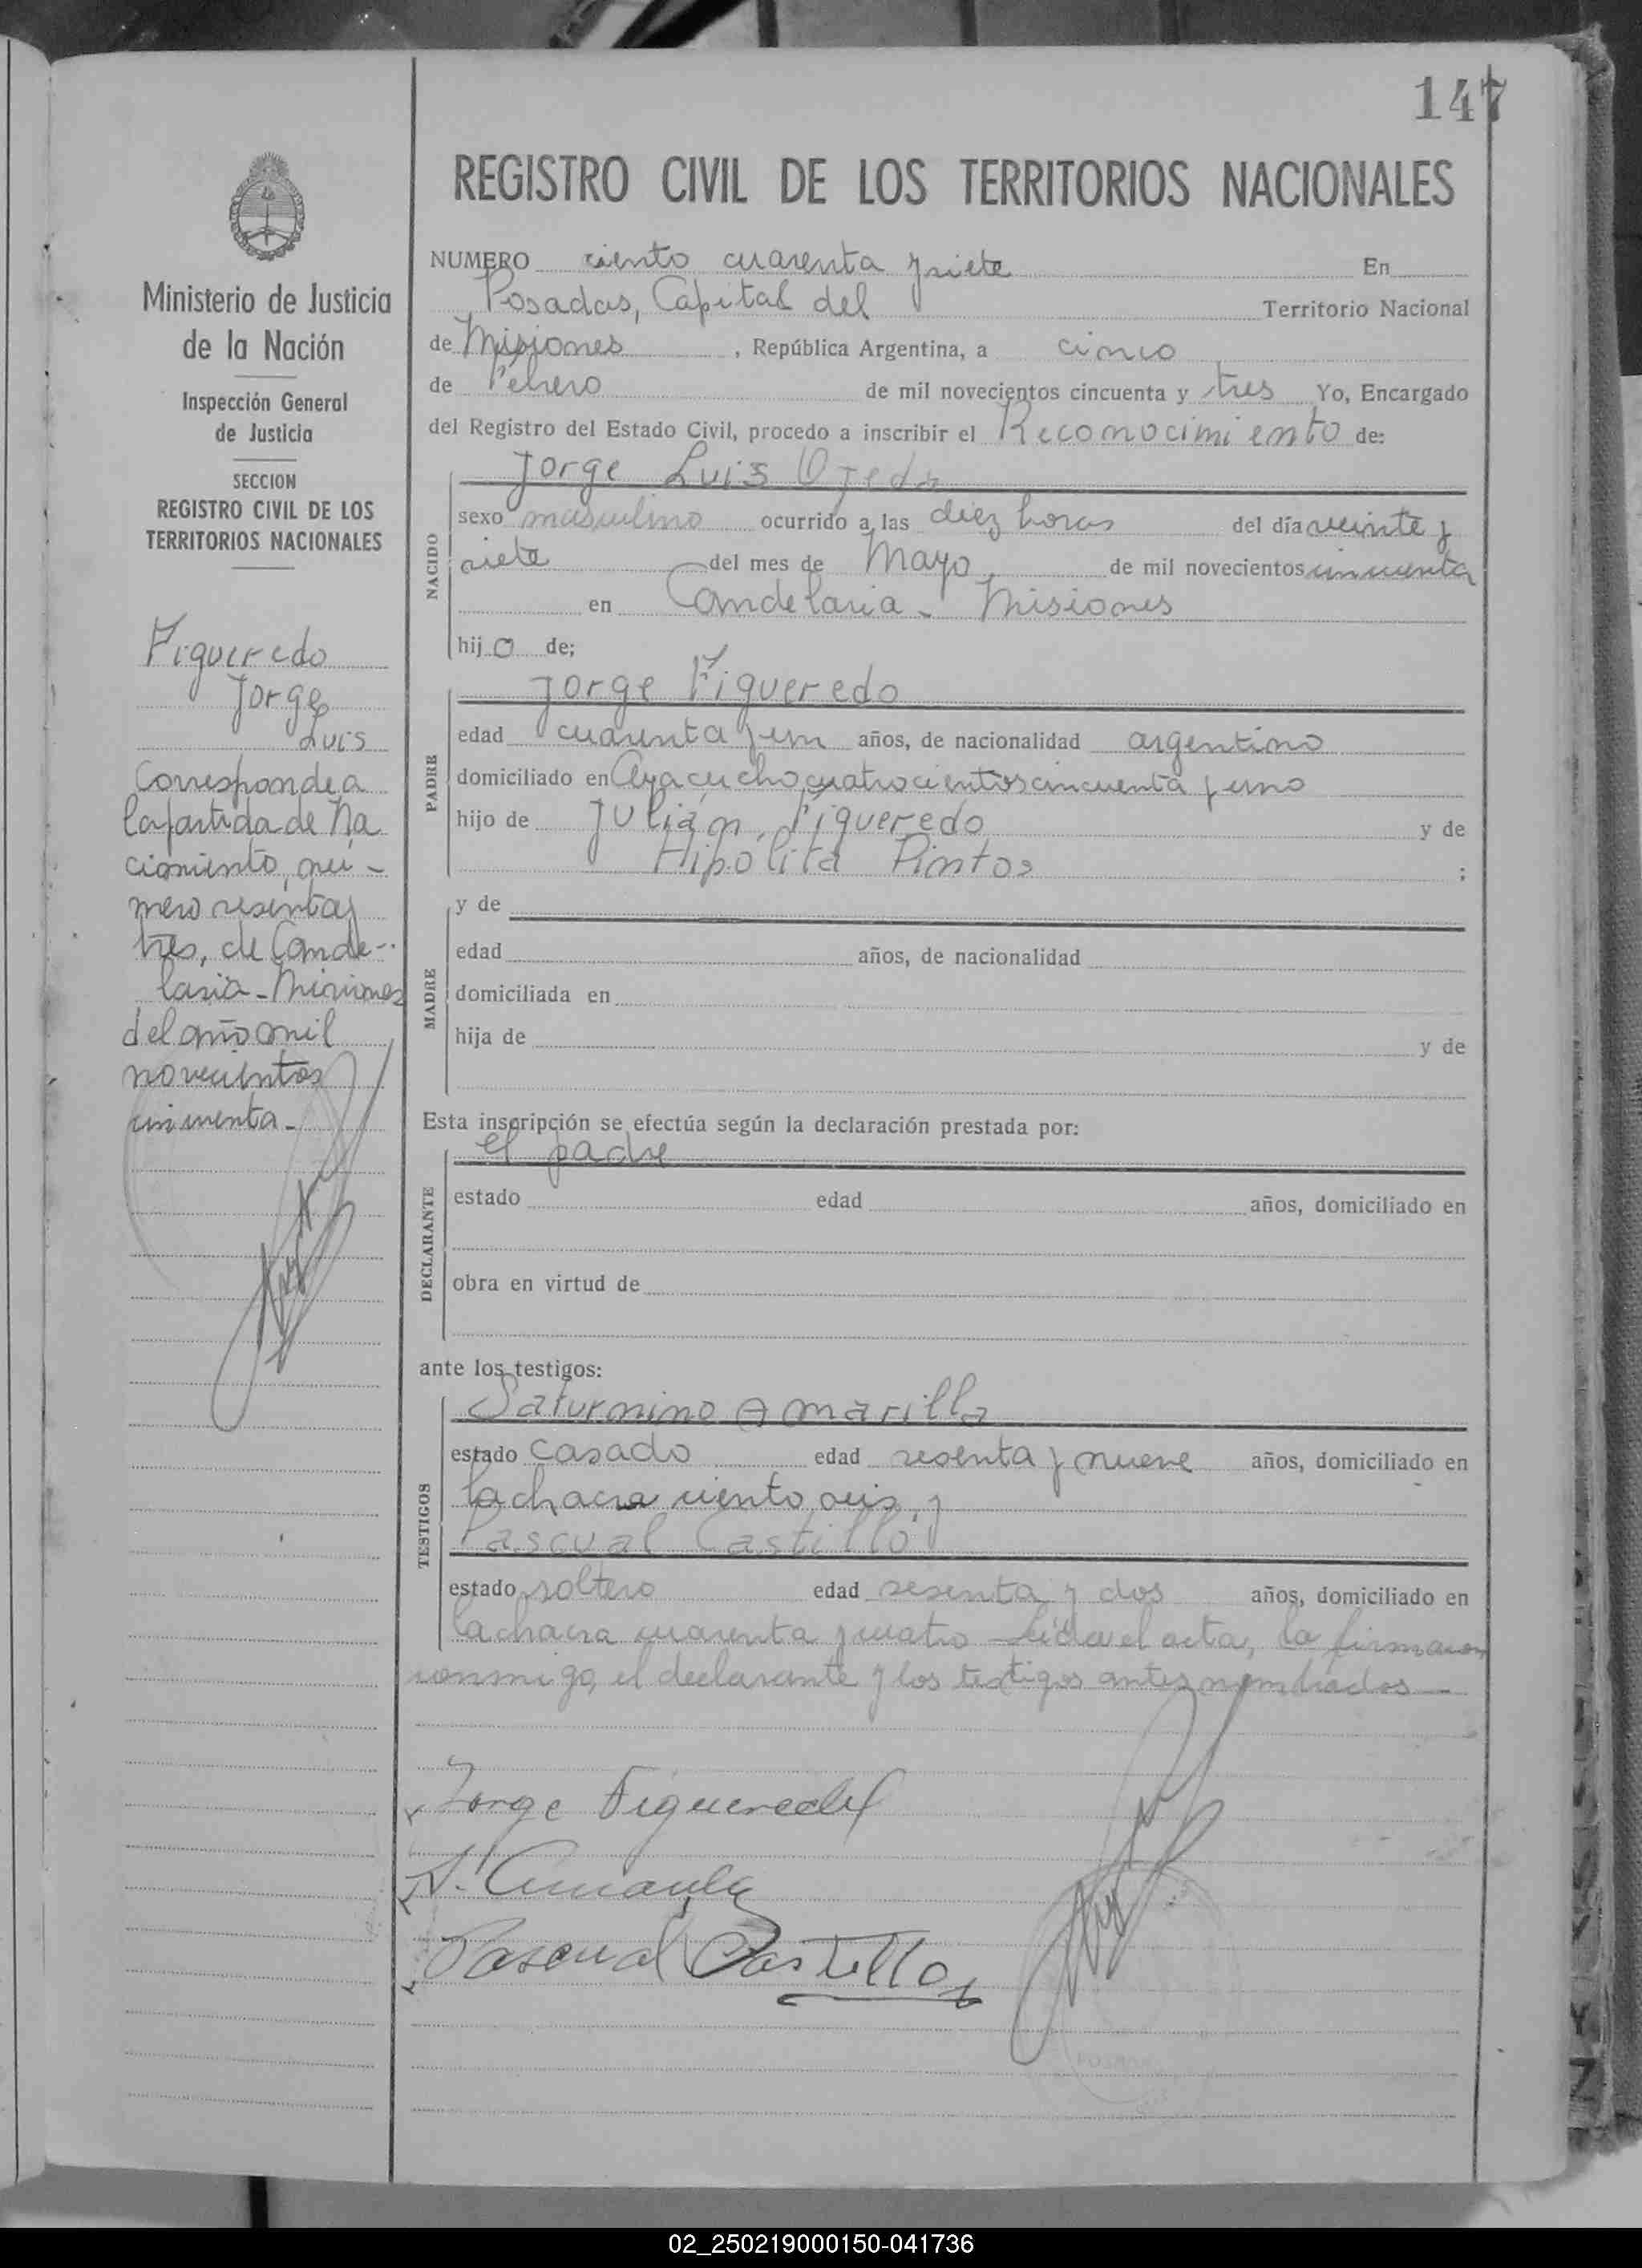 147
REGISTRO CIVIL DE LOS TERRITORIOS NACIONALES
Ministerio de Justicia
de la Nación
Inspección General
de Justicia
SECCION
REGISTRO CIVIL DE LOS
TERRITORIOS NACIONALES
Figueredo
Jorge
Luis
Corresponde a
la partida de Na
cimiento, nú-
mero sesenta y
tres, de Cande-
laria - Misiones
del año mil
novecientos
cincuenta.
NUMERO ciento cuarenta y siete En
Posadas, Capital del Territorio Nacional
de Misiones, República Argentina, a cinco
de Febrero de mil novecientos cincuenta y tres Yo, Encargado
del Registro del Estado Civil, procedo a inscribir el Reconocimiento de:
NACIDO
Jorge Luis Ojeda
sexo masculino ocurrido a las diez horas del día veinte y
siete del mes de Mayo, de mil novecientos cincuenta
en Candelaria - Misiones
hijo de;
PADRE
Jorge Figueredo
edad cuarenta y un años, de nacionalidad argentino
domiciliado en Ayacucho cuatrocientos cincuenta y uno
hijo de Julián Figueredo y de
Hipólita Pintos ;
MADRE
y de
edad años, de nacionalidad
domiciliada en
hija de y de
Esta inscripción se efectúa según la declaración prestada por:
DECLARANTE
el padre
estado edad años, domiciliado en
obra en virtud de
ante los testigos:
TESTIGOS
Saturnino Amarilla
estado casado edad sesenta y nueve años, domiciliado en
la chacra ciento seis, y
Pascual Castillo
estado soltero edad sesenta y dos años, domiciliado en
la chacra cuarenta y cuatro - Leída el acta, la firmaron
conmigo, el declarante y los testigos antes nombrados -
Jorge Figueredo
Pascual Castillo
02_250219000150-041736